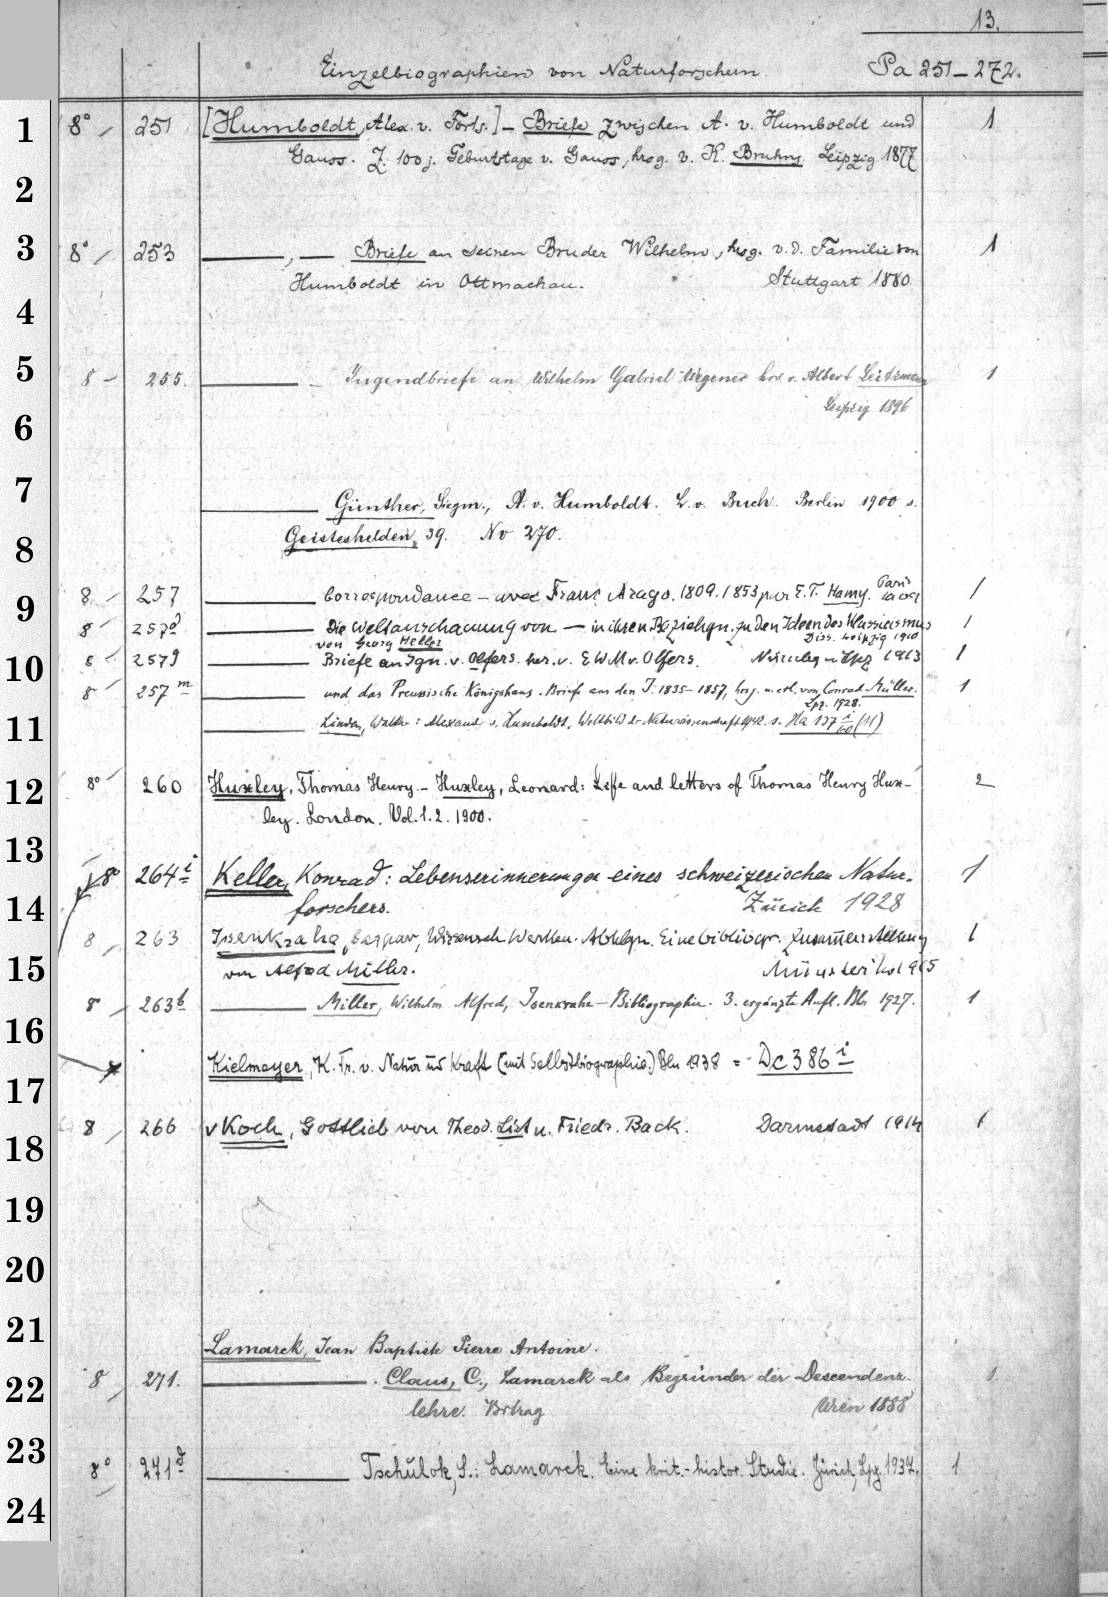 13.
Einzelbiographien von Naturforschern. Pa 251-272.
1 8° 251 [Humboldt, Alex. v. Forts.] - Briefe zwischen A. v. Humboldt und 1
Gauss. Z. 100j. Geburtstage v. Gauss, hrsg. v. K. Bruhns Leipzig 1877
2
3 8° 253 ——, — Briefe an seinen Bruder Wilhelm, hrsg. v. d. Familie von 1
Humboldt in Ottmachau. Stuttgart 1880
4
5 8 - 255. —— - Jugendbriefe an Wilhelm Gabriel Wegener hrs. v. Albert Leitzmann 1
Leipzig 1896
6
7 —— Günther, Siegm., A. v. Humboldt. L. v. Buch. Berlin 1900 s.
8 Geisteshelden, 39. Nv 270.
Paris
9 8 257 —— Correspondance - avec Franç Arago. 1809-1853 par E. T. Hamy. 1
8 257d —— Die Weltanschauung von — in ihren Beziehgn. zu den Ideen des Klassicismus 1
von Georg Heller Diss. Leipzig 1910
10 8 257g —— Briefe an Ign. v. Olfers. her. v. E W M v. Olfers. Nürnbg u Lpz 1913 1
8 257m —— und das Preussische Königshaus. Briefe aus den J. 1835-1857, hrsg. u. erl. von Conrad Müller. 1
Lpz. 1928.
11 —— Linden, Walther: Alexand v. Humboldt. Weltbild der Naturwissenschaft 1942. s. Ha 137 i/60 (11)
12 8° 260 Huxley, Thomas Henry. - Huxley, Leonard: Life and letters of Thomas Henry Hux- 2
ley. London. Vol. 1.2. 1900.
13
8° 264i Keller, Konrad: Lebenserinnerungen eines schweizerischen Natur- 1
14 forschers. Zürich 1928
8 263 Isenkrahe, Caspar, Wissensch Werthen. Abhdgn. Eine bibliogr. Zusammenstellung 1
15 von Alfred Miller. Münster
8 263b —— Miller, Wilhelm Alfred, Isenkrahe-Bibliographie. 3. ergänzte Aufl. Bln 1927. 1
16
Kielmeyer, K. Fr. v. Natur und Kraft (mit Selbstbiographie.) Bln 1938 = Dc 386 i
17
8 266 v Koch, Gottlieb von Theod. List u. Friedr. Back. Darmstadt 1914 1
18
19
20
21 Lamarck, Jean Baptiste Pierre Antoine.
22 8 271. ——. Claus, C., Lamarck als Begründer der Descendenz- 1
lehre. Vortrag Wien 1888
23 8° 271d —— Tschulok, S.: Lamarck. Eine krit.-histor. Studie. Zürich, Lpz. 1937. 1
24